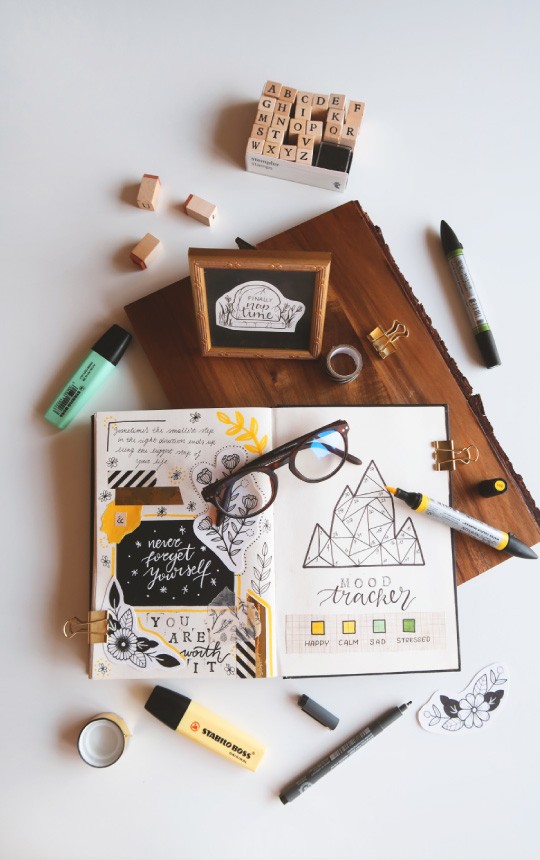 A B C D E F
G H I K
M N O P R
S T V
W X Y Z
stempler
stamps
FINALLY
nap
time
Sometimes the smallest step
in the right direction ends up
being the biggest step of
your life
&
never
forget
yourself
YOU
ARE
worth
IT
MOOD
tracker
HAPPY CALM SAD STRESSED
STABILO BOSS
ORIGINAL